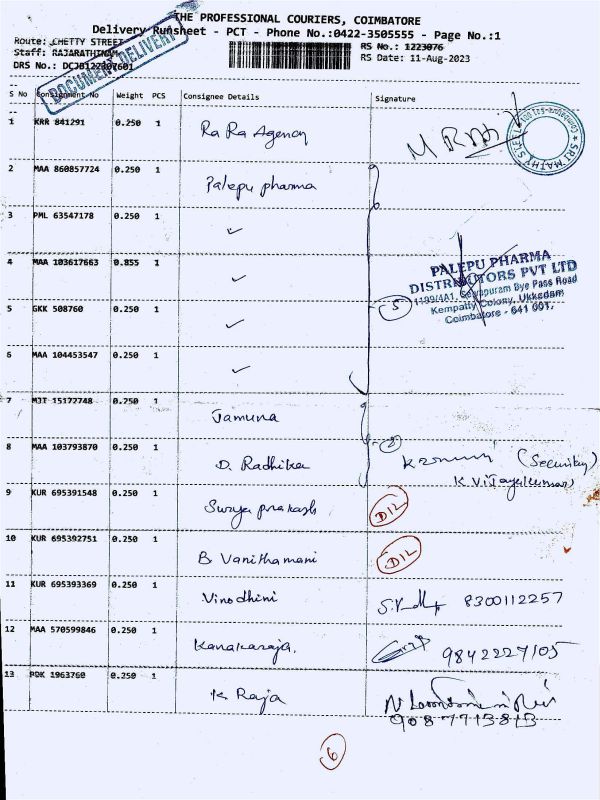 THE PROFESSIONAL COURIERS, COIMBATORE
Delivery Runsheet - PCT - Phone No.:0422-3505555 - Page No.:1
Route: CHETTY STREET
Staff: RAJARATHINAM
DRS No.: DCJB122307601
RS No.: 1223076
RS Date: 11-Aug-2023
DOCUMENT DELIVERY
S No Consignment No Weight PCS Consignee Details Signature
1 KRR 841291 0.250 1 Ra Ra Agency
SRI MATHY STEEL
2 MAA 860857724 0.250 1 Palepu pharma
3 PML 63547178 0.250 1 ✓
4 MAA 103617663 0.855 1 ✓
PALEPU PHARMA
DISTRIBUTORS PVT LTD
1199/4A1, Bye Pass Road
Kempatty Colony, Ukkadam
Coimbatore - 641 001.
5 GKK 508760 0.250 1 ✓ 5
6 MAA 104453547 0.250 1 ✓
7 MJT 15172748 0.250 1 Jamuna
2
8 MAA 103793870 0.250 1 D. Radhika (Security)
K Vijayakumar
9 KUR 695391548 0.250 1 Surya prakash D12
10 KUR 695392751 0.250 1 B Vanithamani D12
11 KUR 695393369 0.250 1 Vinodhini 8300112257
12 MAA 570599846 0.250 1 Kanakaraja. 9842227105
13 PDK 1963760 0.250 1 K Raja
9087713813
6